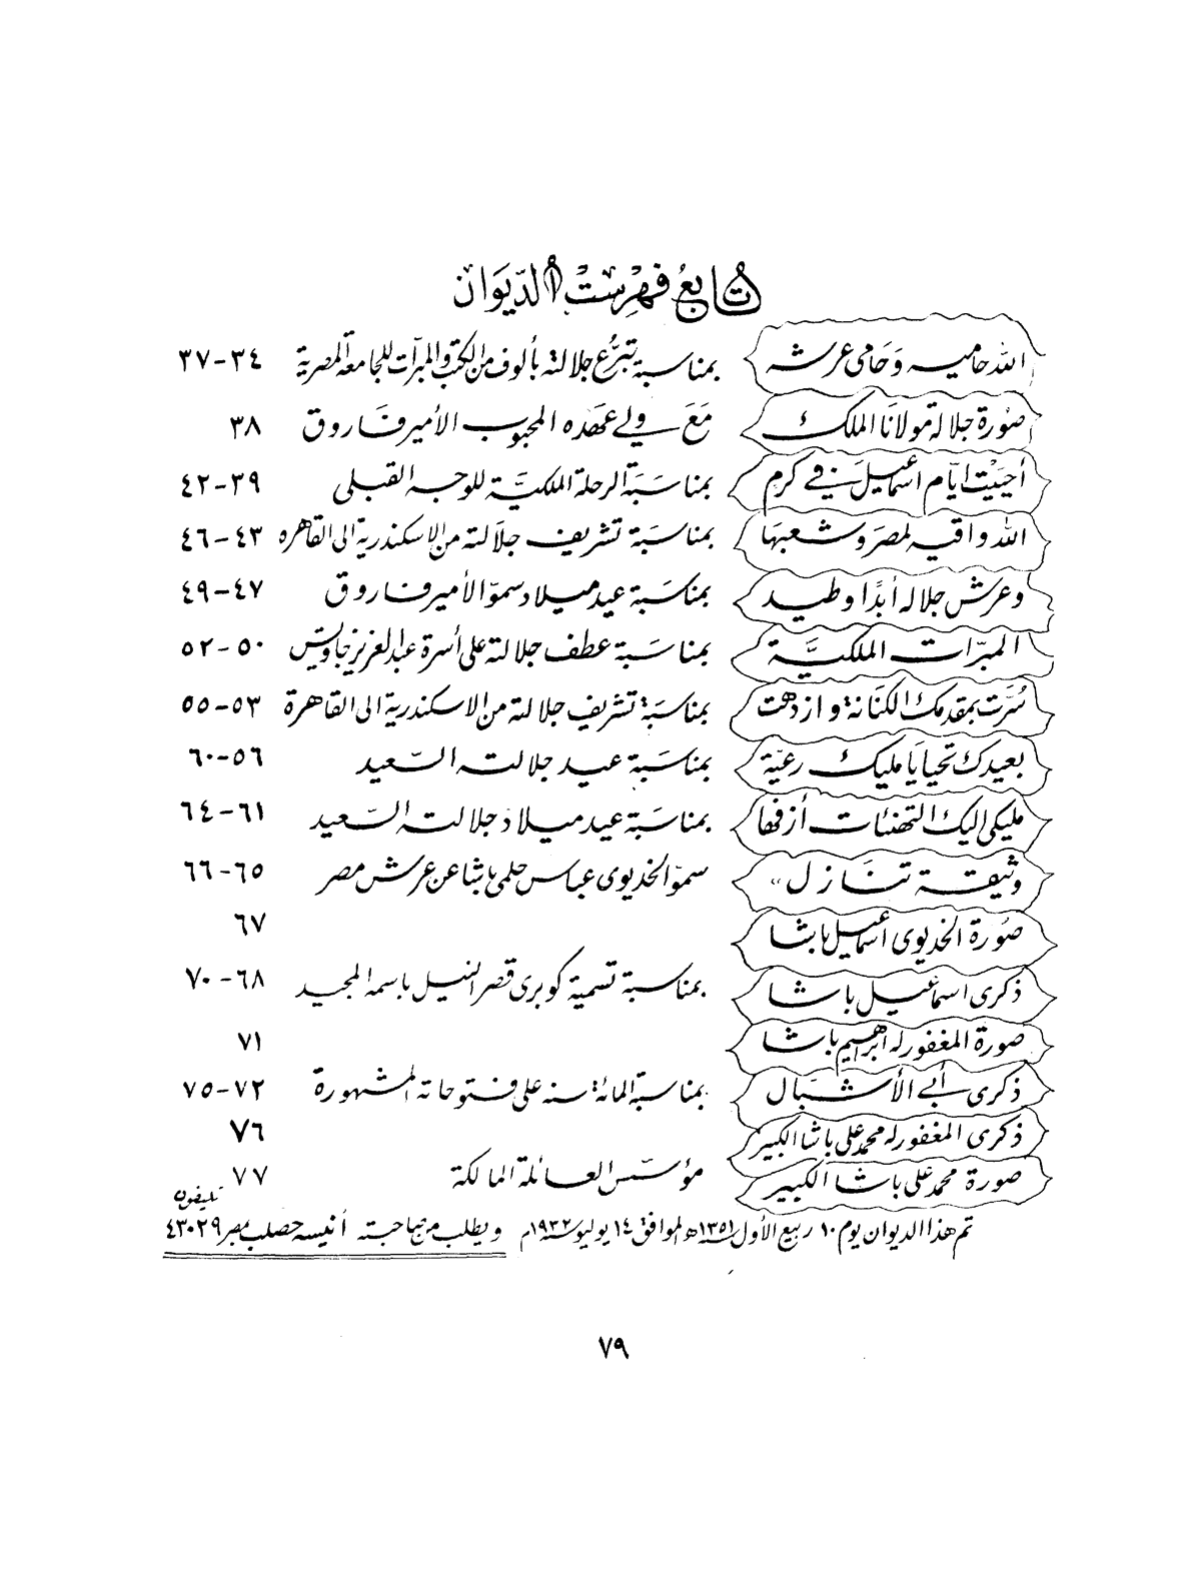 تابع فهرست الديوان
الله حاميه وحامى عرشه بمناسبة تبرع جلالته بألوف من الكتب والمبرات للجامعة المصرية ٣٤-٣٧
صورة جلالة مولانا الملك مع ولي عهده المحبوب الأمير فاروق ٣٨
أحييت ايام اسماعيل في كرم بمناسبة الرحلة الملكية للوجه القبلى ٣٩-٤٢
الله واقيه لمصر وشعبها بمناسبة تشريف جلالته من الاسكندرية الى القاهره ٤٣-٤٦
وعرش جلاله أبدًا وطيد بمناسبة عيد ميلاد سمو الأمير فاروق ٤٧-٤٩
المبرّات الملكيَّة بمناسبة عطف جلالته على أسرة عبد العزيز جاويش ٥٠-٥٢
سُرَّت بمقدمك الكنانة وازدهت بمناسبة تشريف جلالته من الاسكندرية الى القاهرة ٥٣-٥٥
بعيدك تحيا يا مليك رعيّة بمناسبة عيد جلالته السّعيد ٥٦-٦٠
مليكى اليك التهنئات أزفها بمناسبة عيد ميلاد جلالته السّعيد ٦١-٦٤
وثيقة تنازل،، سموّ الخديوى عباس حلمى باشا عن عرش مصر ٦٥-٦٦
صورة الخديوى اسماعيل باشا ٦٧
ذكرى اسماعيل باشا بمناسبة تسمية كوبرى قصر النيل باسمه المجيد ٦٨-٧٠
صورة المغفور له ابراهيم باشا ٧١
ذكرى أبي الأشبال بمناسبة المائة سنه على فتوحاته المشهورة ٧٢-٧٥
ذكرى المغفور له محمد على باشا الكبير ٧٦
صورة محمد على باشا الكبير مؤسّس العائلة المالكة ٧٧
تم هذا الديوان يوم ١٠ ربيع الأول سنة ١٣٥١ه الموافق ١٤ يوليو سنة ١٩٣٢م ويطلب من صاحبته أنيسه حصلب مصر تليفون ٤٣٠٢٩
٧٩